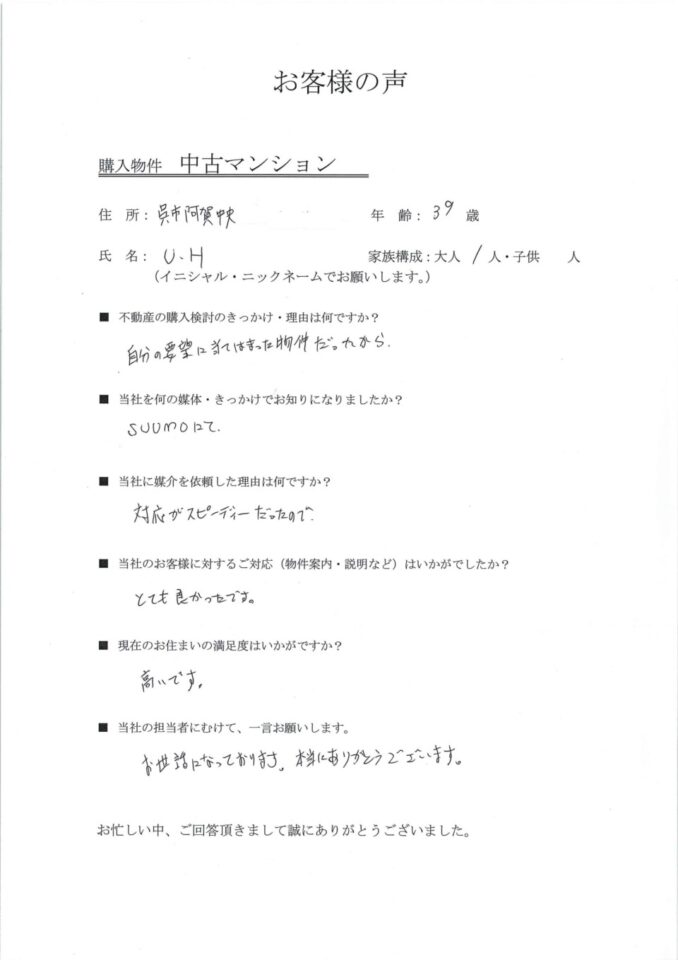 お客様の声
購入物件 中古マンション
住 所：呉市阿賀中央 年 齢：39 歳
氏 名：U.H 家族構成：大人 1 人・子供 人
（イニシャル・ニックネームでお願いします。）
■ 不動産の購入検討のきっかけ・理由は何ですか？
自分の要望に当てはまった物件だったから.
■ 当社を何の媒体・きっかけでお知りになりましたか？
SUUMOにて.
■ 当社に媒介を依頼した理由は何ですか？
対応がスピーディーだったので.
■ 当社のお客様に対するご対応（物件案内・説明など）はいかがでしたか？
とても良かったです。
■ 現在のお住まいの満足度はいかがですか？
高いです。
■ 当社の担当者にむけて、一言お願いします。
お世話になっております。本当にありがとうございます。
お忙しい中、ご回答頂きまして誠にありがとうございました。